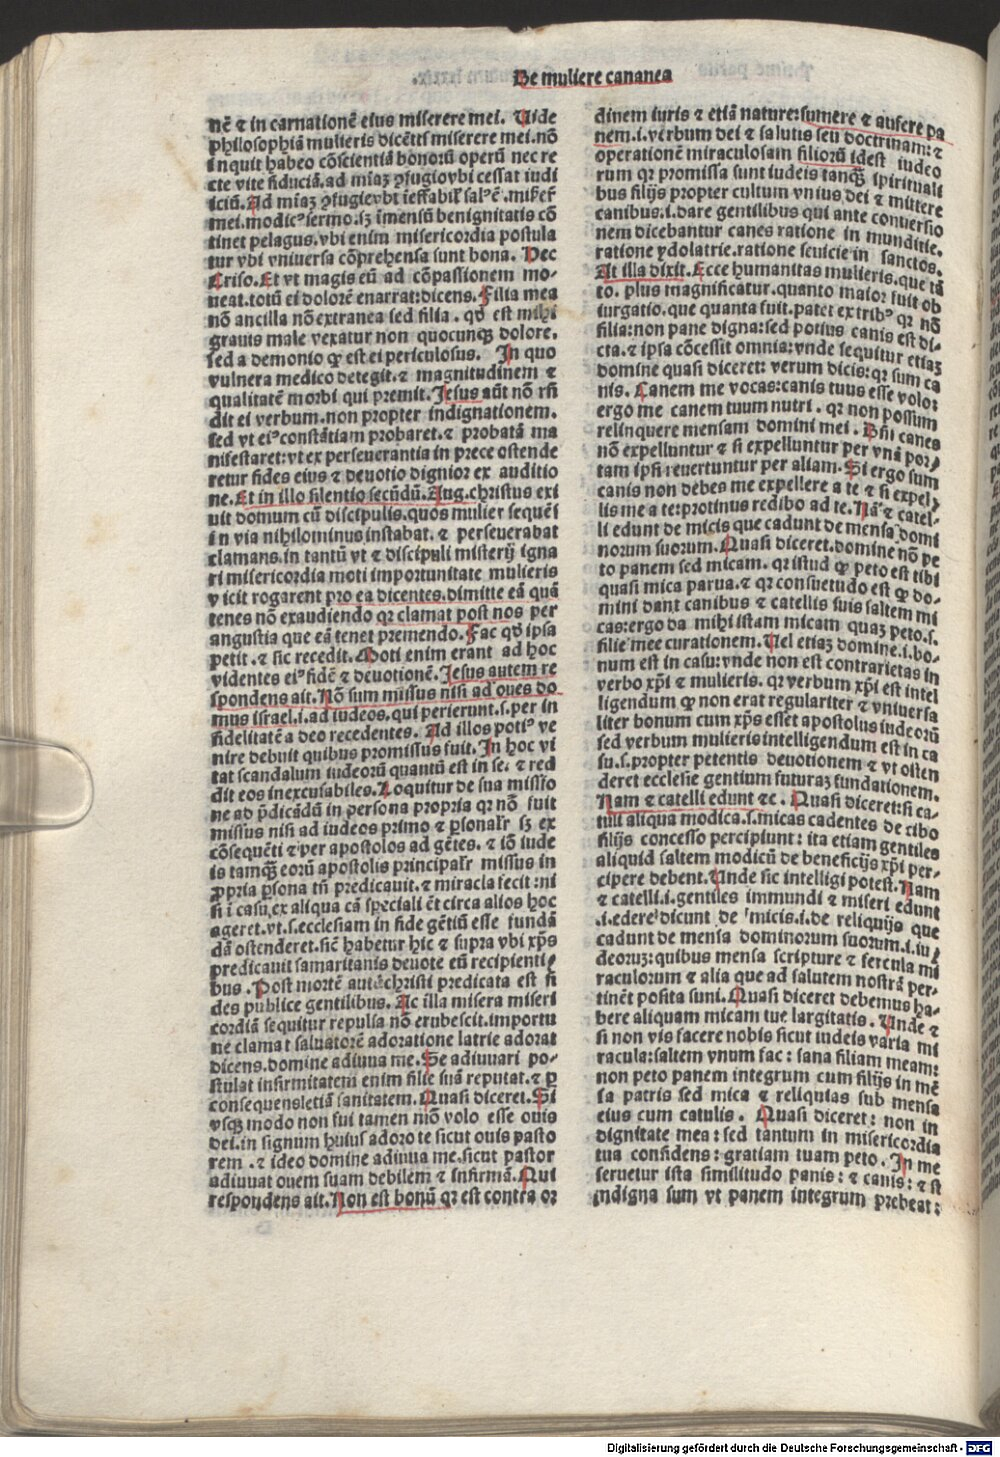 De muliere cananea
nē ⁊ in carnationē eius miserere mei. Uide
philosophiā mulieris dicētis miserere mei.nō
inquit habeo cōscientiā bonorū operū nec re
cte vite fiduciā.ad mīaꝫ ꝯfugio vbi cessat iudi
iciū.Ad mīaꝫ ꝯfugio vbi
mei.modicꝰ sermo.sꝫ īmensū benignitatis cō
tinet pelagus.vbi enim misericordia postula
tur vbi vniuersa cōprehensa sunt bona. Hec
Criso.Et vt magis eū ad cōpassionem mo-
ueat.totū ei dolorē enarrat:dicens.Filia mea
nō ancilla nō extranea sed filia. qđ est mihi
grauis male vexatur non quocunqꝫ dolore.
sed a demonio qđ est ei periculosus. In quo
vulnera medico detegit.⁊ magnitudinem ⁊
qualitatē morbi qui premit.Jesus aūt nō rñ
dit ei verbum.non propter indignationem.
sed vt eiꝰ constātiam probaret.⁊ probatā ma
nifestaret:vt ex perseuerantia in prece ostende
retur fides eius ⁊ deuotio dignior ex auditio
ne.Et in illo silentio secūdū.Aug.christus exi
uit domum cū discipulis.quos mulier sequēs
in via nihilominus instabat. ⁊ perseuerabat
clamans.in tantū vt ⁊ discipuli misterij igna
ri misericordia moti importunitate mulieris
vicit rogarent pro ea dicentes.dimitte eā quā
tenes nō exaudiendo qꝛ clamat post nos per
angustia que eā tenet premendo.Fac qđ ipsa
petit.⁊ sic recedit.Moti enim erant ad hoc
videntes eiꝰ fidē ⁊ deuotionē.Jesus autem re
spondens ait.Nō sum missus nisi ad oues do
mus israel.i.ad iudeos.qui perierunt.s.per in
fidelitatē a deo recedentes. Ad illos potiꝰ ve
nire debuit quibus promissus fuit.In hoc vi
tat scandalum iudeorū quantū est in se. ⁊ red
dit eos inexcusabiles.Loquitur de sua missio
ne ad p̄dicādū in persona propria qꝛ nō fuit
missus nisi ad iudeos primo ⁊ ꝑsonalr̄ sꝫ ex
cōsequēti ⁊ per apostolos ad gētes.⁊ iō iude
is tamqꝫ eorū apostolis principalr̄ missus in
ꝓpria ꝑsona tñ predicauit.⁊ miracla fecit:ni
si ī casu ex aliqua cā speciali ēt circa alios hoc
ageret.vt.s.ecclesiam in fide gētiū esse fundā
dā ostenderet.sicē habetur hic ⁊ supra vbi xp̄s
predicauit samaritanis deuote eū recipienti
bus.Post mortē autē christi predicata est fi
des publice gentilibus. Ac illa misera miseri
cordiā sequitur repulsa nō erubescit.importu
ne clamat saluatorē adoratione latrie adorat
dicens.domine adiuua me.Se adiuuari po-
stulat infirmitatem enim filie suā reputat.⁊ ꝑ
consequens etiā sanitatem.Quasi diceret.Si
vsqꝫ modo non fui tamen mō volo esse ouis
dei.in signum huius adoro te sicut ouis pasto
rem.⁊ ideo domine adiuua me.sicut pastor
adiuuat ouem suam debilem ⁊ infirmā.Qui
respondens ait.Non est bonū qꝛ est contra or
dinem iuris ⁊ etiā nature:sumere ⁊ auferre pa
nem.i.verbum dei ⁊ salutis seu doctrinam:⁊
operationē miraculosam filiorū idest iudeo
rum qꝛ promissa sunt iudeis tanqꝫ spirituali
bus filijs propter cultum vnius dei ⁊ mittere
canibus.i.dare gentilibus qui ante conuersio
nem dicebantur canes ratione in munditie.
ratione ydolatrie.ratione seuicie in sanctos.
At illa dixit.Ecce humanitas mulieris.que tā
to. plus magnificatur.quanto maior fuit ob
iurgatio.que quanta fuit.patet ex tribꝰ qꝛ nō
filia:non pane digna:sed potius canis est di-
cta.⁊ ipsa cōcessit omnia:vnde sequitur etiaꝫ
domine quasi diceret: verum dicis:qꝛ sum ca
nis. Canem me vocas:canis tuus esse volo:
ergo me canem tuum nutri. qꝛ non possum
relinquere mensam domini mei. Bñ canes
nō expelluntur ⁊ si expelluntur per vnā por-
tam ipsi reuertuntur per aliam.Si ergo sum
canis non debes me expellere a te ⁊ si expel-
lis me a te:protinus redibo ad te.Nā ⁊ catel-
li edunt de micis que cadunt de mensa domi
norum suorum.Quasi diceret.domine nō pe
to panem sed micam. qꝛ istud qđ peto est tibi
quasi mica parua.⁊ qꝛ consuetudo est qđ do-
mini dant canibus ⁊ catellis suis saltem mi
cas:ergo da mihi istam micam quaꝫ peto.s.
filie mee curationem.Vel etiaꝫ domine.i.bo-
num est in casu:vnde non est contrarietas in
verbo xp̄i ⁊ mulieris. qꝛ verbum xp̄i est intel
ligendum qđ non erat regulariter ⁊ vniuersa
liter bonum cum xp̄s esset apostolus iudeorū
sed verbum mulieris intelligendum est in ca
su.s.propter petentis deuotionem ⁊ vt osten
deret ecclesie gentium futuraꝫ fundationem.
Nam ⁊ catelli edunt ⁊c. Quasi diceret:si ca-
tuli aliqua modica.s.micas cadentes de cibo
filijs concesso percipiunt: ita etiam gentiles
aliquid saltem modicū de beneficijs xp̄i per-
cipere debent.Unde sic intelligi potest.Nam
⁊ catelli.i.gentiles immundi ⁊ miseri edunt
.i.edere dicunt de micis.i.de reliquijs que
cadunt de mensa dominorum suorum.i.iu
deorum:quibus mensa scripture ⁊ fercula mi
raculorum ⁊ alia que ad salutem nostrā per-
tinēt posita suni.Quasi diceret debemus ha-
bere aliquam micam tue largitatis. Unde ⁊
si non vis facere nobis sicut iudeis varia mi
racula:saltem vnum fac: sana filiam meam:
non peto panem integrum cum filijs in mē
sa patris sed mica ⁊ reliquias sub mensa
eius cum catulis. Quasi diceret: non in
dignitate mea: sed tantum in misericordia
tua confidens: gratiam tuam peto. In me
seruetur ista similitudo panis: ⁊ canis: ⁊ si
indigna sum vt panem integrum prebeat:
Digitalisierung gefördert durch die Deutsche Forschungsgemeinschaft - DFG